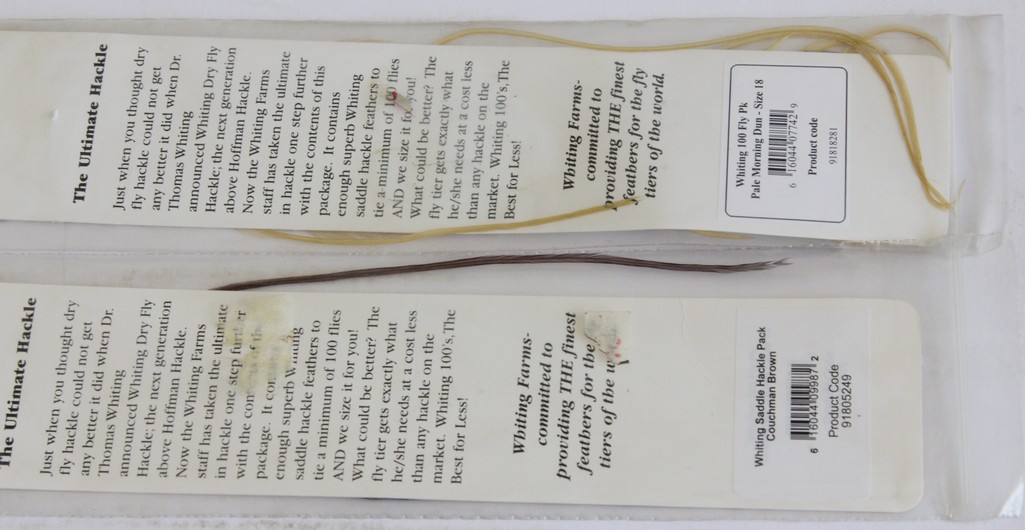 The Ultimate Hackle
Just when you thought dry
fly hackle could not get
any better it did when Dr.
Thomas Whiting
announced Whiting Dry Fly
Hackle; the next generation
above Hoffman Hackle.
Now the Whiting Farms
staff has taken the ultimate
in hackle one step further
with the contents of this
package. It contains
enough superb Whiting
saddle hackle feathers to
tie a minimum of 100 flies
AND we size it for you!
What could be better? The
fly tier gets exactly what
he/she needs at a cost less
than any hackle on the
market. Whiting 100's, The
Best for Less!
Whiting Farms-
committed to
providing THE finest
feathers for the fly
tiers of the world.
Whiting 100 Fly Pk
Pale Morning Dun - Size 18
6 16044 07742 9
Product code
91818281
The Ultimate Hackle
Just when you thought dry
fly hackle could not get
any better it did when Dr.
Thomas Whiting
announced Whiting Dry Fly
Hackle; the next generation
above Hoffman Hackle.
Now the Whiting Farms
staff has taken the ultimate
in hackle one step further
with the of the
package. It
enough superb Whiting
saddle hackle feathers to
tie a minimum of 100 flies
AND we size it for you!
What could be better? The
fly tier gets exactly what
he/she needs at a cost less
than any hackle on the
market. Whiting 100's, The
Best for Less!
Whiting Farms-
committed to
providing THE finest
feathers for the
tiers of the
Whiting Saddle Hackle Pack
Couchman Brown
6 16044 09987 2
Product Code
91805249